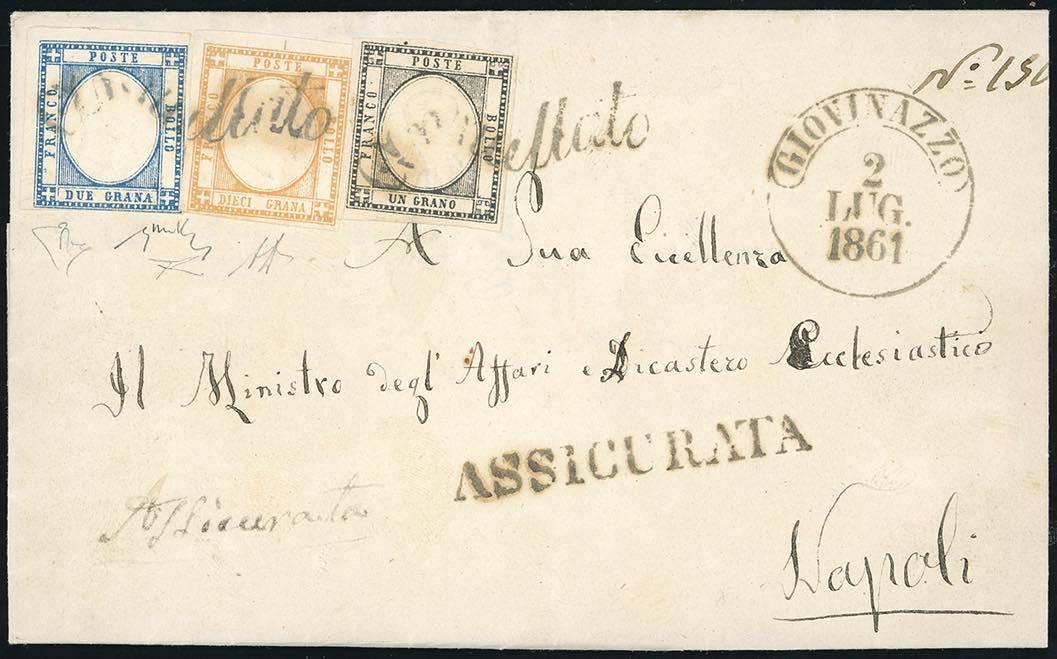 POSTE
FRANCO
BOLLO
DUE GRANA
POSTE
FRANCO
BOLLO
DIECI GRANA
POSTE
FRANCO
BOLLO
UN GRANO
GIOVINAZZO
2
LUG.
1861
A Sua Eccellenza
Il Ministro degl' Affari e Dicastero Ecclesiastico
ASSICURATA
Assicurata
Napoli